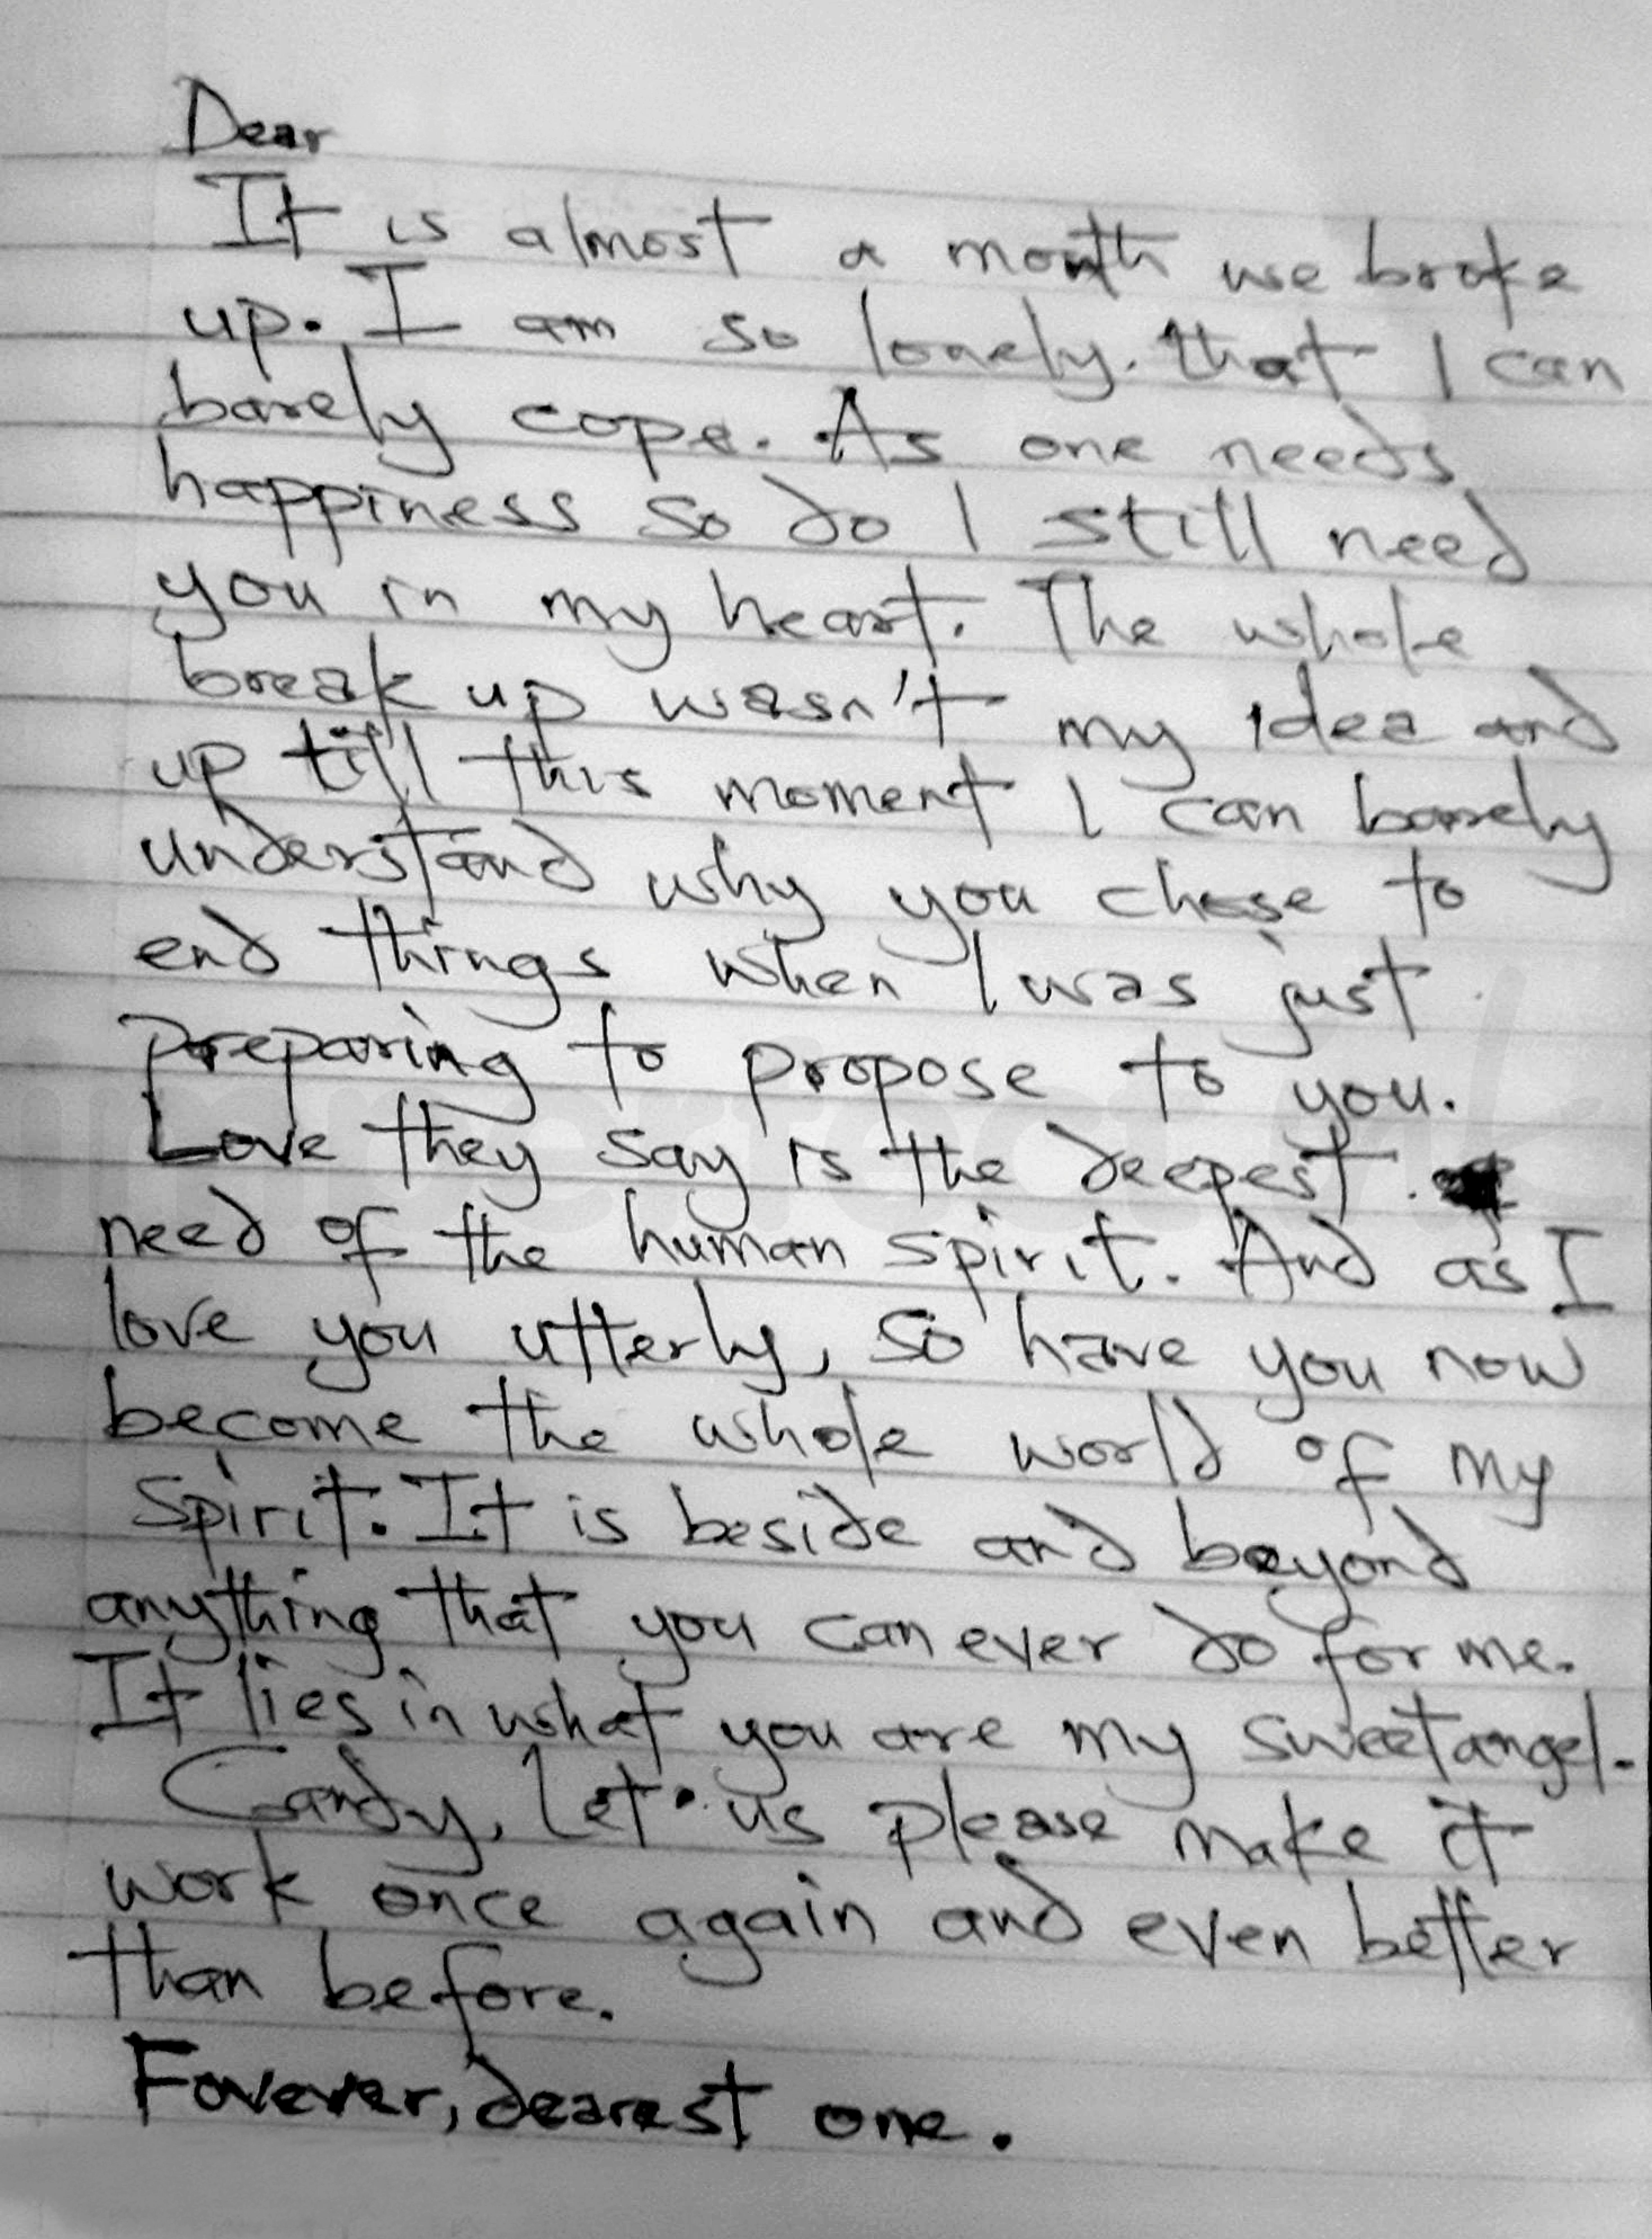 Dear
It is almost a month we broke
up. I am so lonely. that I can
barely cope. As one needs
happiness so do I still need
you in my heart. The whole
break up wasn't my idea and
up till this moment I can barely
understand why you chose to
end things when I was just
preparing to propose to you.
Love they say is the deepest
need of the human spirit. And as I
love you utterly, so have you now
become the whole world of my
spirit. It is beside and beyond
anything that you can ever do for me.
It lies in what you are my sweet angel.
Candy, Let us please make it
work once again and even better
than before.
Forever, dearest one.